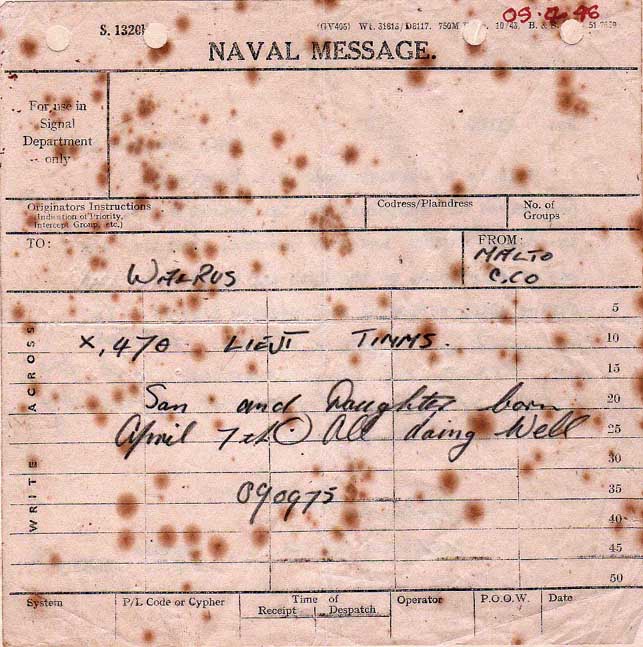 09.4.46
S. 1320
NAVAL MESSAGE.
For use in
Signal
Department
only
Originators Instructions
(Indication of Priority,
Intercept Group, etc.)
Codress/Plaindress
No. of
Groups
TO:
WALRUS
FROM:
MALTO
C.CO
5
X, 470 LIEUT TIMMS.
10
15
Son and Daughter born
20
April 7th All doing Well
25
30
090975
35
40
45
50
WRITE ACROSS
System
P/L Code or Cypher
Time of
Receipt
Despatch
Operator
P.O.O.W.
Date